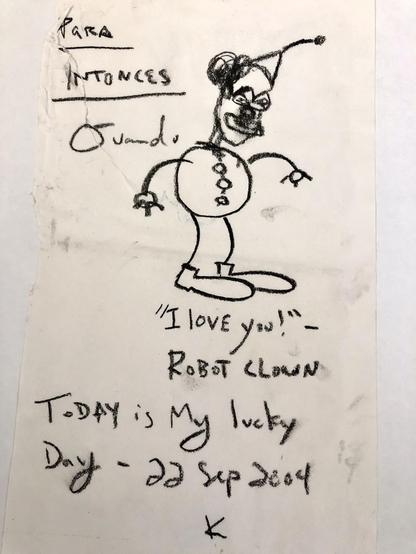 PARA
INTONCES
Quando
"I love you!" -
ROBOT CLOWN
TODAY is My lucky
Day - 22 Sep 2004
K